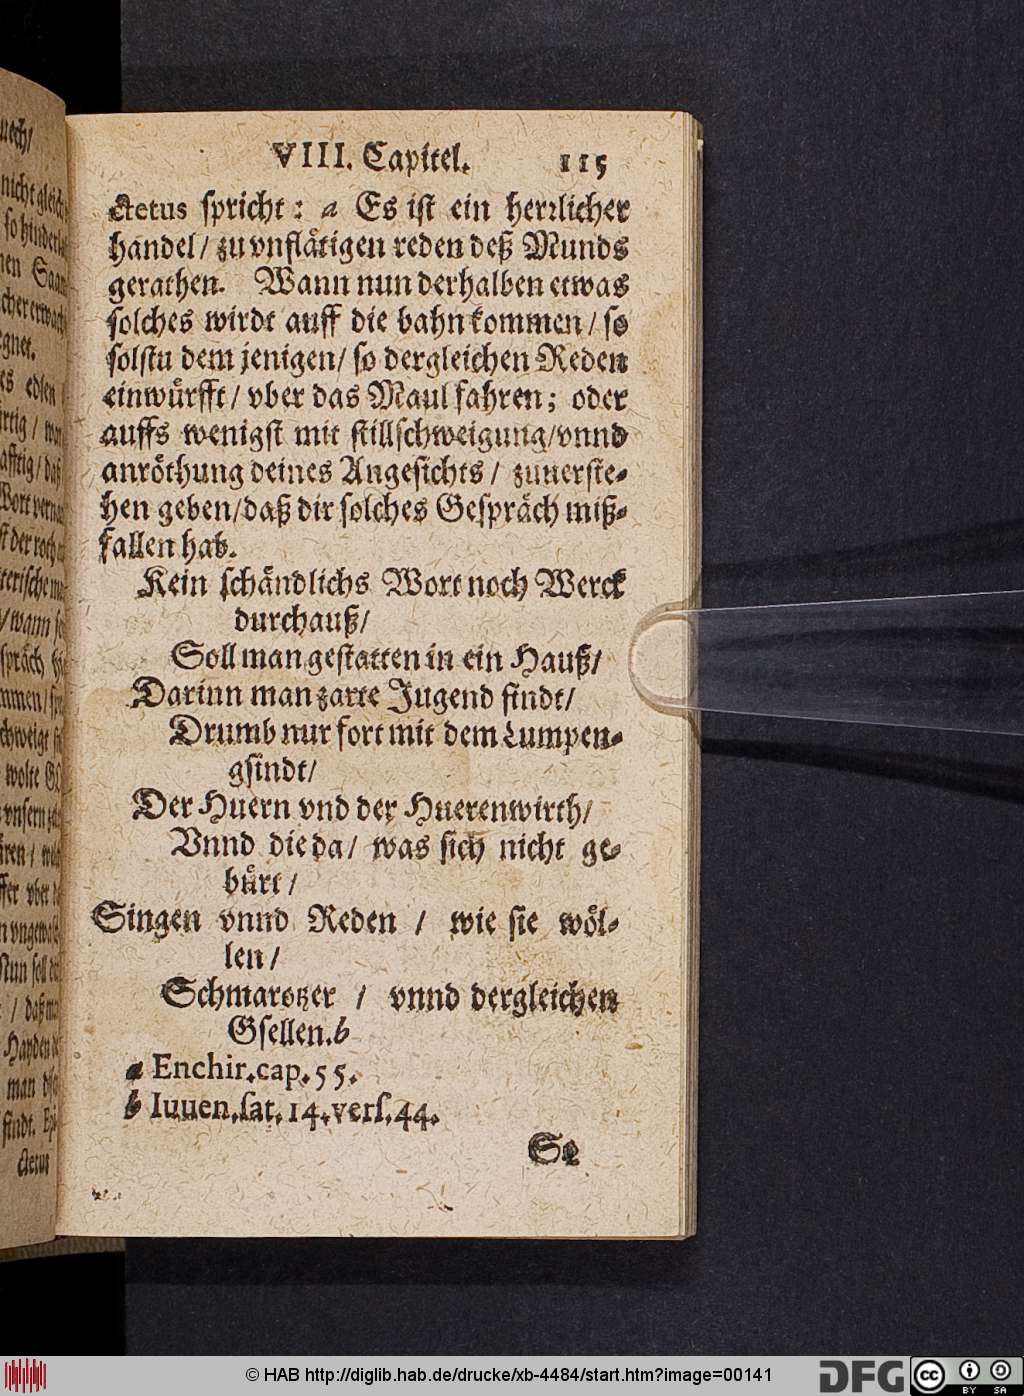 VIII. Capitel. 115
ctetus spricht: a Es ist ein herꝛlicher
handel / zu vnflätigen reden deß Munds
gerathen. Wann nun derhalben etwas
solches wirdt auff die bahn kommen / so
solstu dem jenigen / so dergleichen Reden
einwürfft / vber das Maul fahren; oder
auffs wenigst mit stillschweigung / vnnd
anröthung deines Angesichts / zuuerste-
hen geben / daß dir solches Gespräch miß-
fallen hab.
Kein schändlichs Wort noch Werck
durchauß /
Soll man gestatten in ein Hauß /
Darinn man zarte Jugend findt /
Drumb nur fort mit dem Lumpen-
gsindt /
Der Huern vnd der Huerenwirth /
Vnnd die da / was sich nicht ge-
bürt /
Singen vnnd Reden / wie sie wöl-
len /
Schmarotzer / vnnd dergleichen
Gsellen. b
a Enchir. cap. 55.
b Iuuen. sat. 14. vers. 44.
Se
© HAB http://diglib.hab.de/drucke/xb-4484/start.htm?image=00141
DFG
cc BY SA